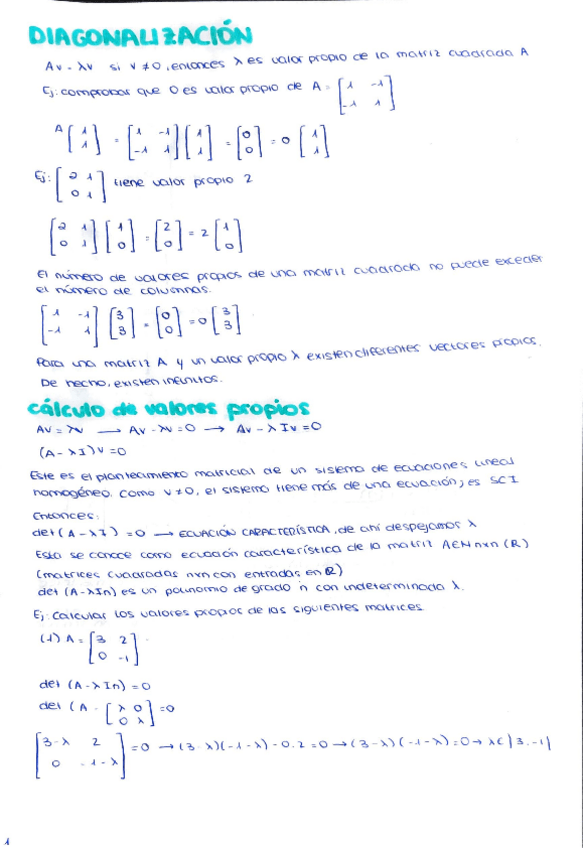 DIAGONALIZACIÓN
Av = λv si v ≠ 0, entonces λ es valor propio de la matriz cuadrada A
Ej: comprobar que 0 es valor propio de A = [1 -1; -1 1]
A [1; 1] = [1 -1; -1 1] [1; 1] = [0; 0] = 0 [1; 1]
Ej: [2 1; 0 1] tiene valor propio 2
[2 1; 0 1] [1; 0] = [2; 0] = 2 [1; 0]
El número de valores propios de una matriz cuadrada no puede exceder
el número de columnas.
[1 -1; -1 1] [3; 3] = [0; 0] = 0 [3; 3]
Para una matriz A y un valor propio λ existen diferentes vectores propios.
De hecho, existen infinitos.
cálculo de valores propios
Av = λv → Av - λv = 0 → Av - λIv = 0
(A - λI)v = 0
Este es el planteamiento matricial de un sistema de ecuaciones lineal
homogéneo. Como v ≠ 0, el sistema tiene más de una ecuación; es SCI
Entonces:
det(A - λI) = 0 → ECUACIÓN CARACTERÍSTICA, de ahí despejamos λ
Esta se conoce como ecuación característica de la matriz A∈M nxn (R)
(matrices cuadradas nxn con entradas en R)
det (A - λIn) es un polinomio de grado n con indeterminada λ.
Ej: Calcular los valores propios de las siguientes matrices
(1) A = [3 2; 0 -1]
det (A - λIn) = 0
det (A - [λ 0; 0 λ] = 0
[3-λ 2; 0 -1-λ] = 0 → (3-λ)(-1-λ) - 0.2 = 0 → (3-λ)(-1-λ) = 0 → λ∈{3,-1}
1